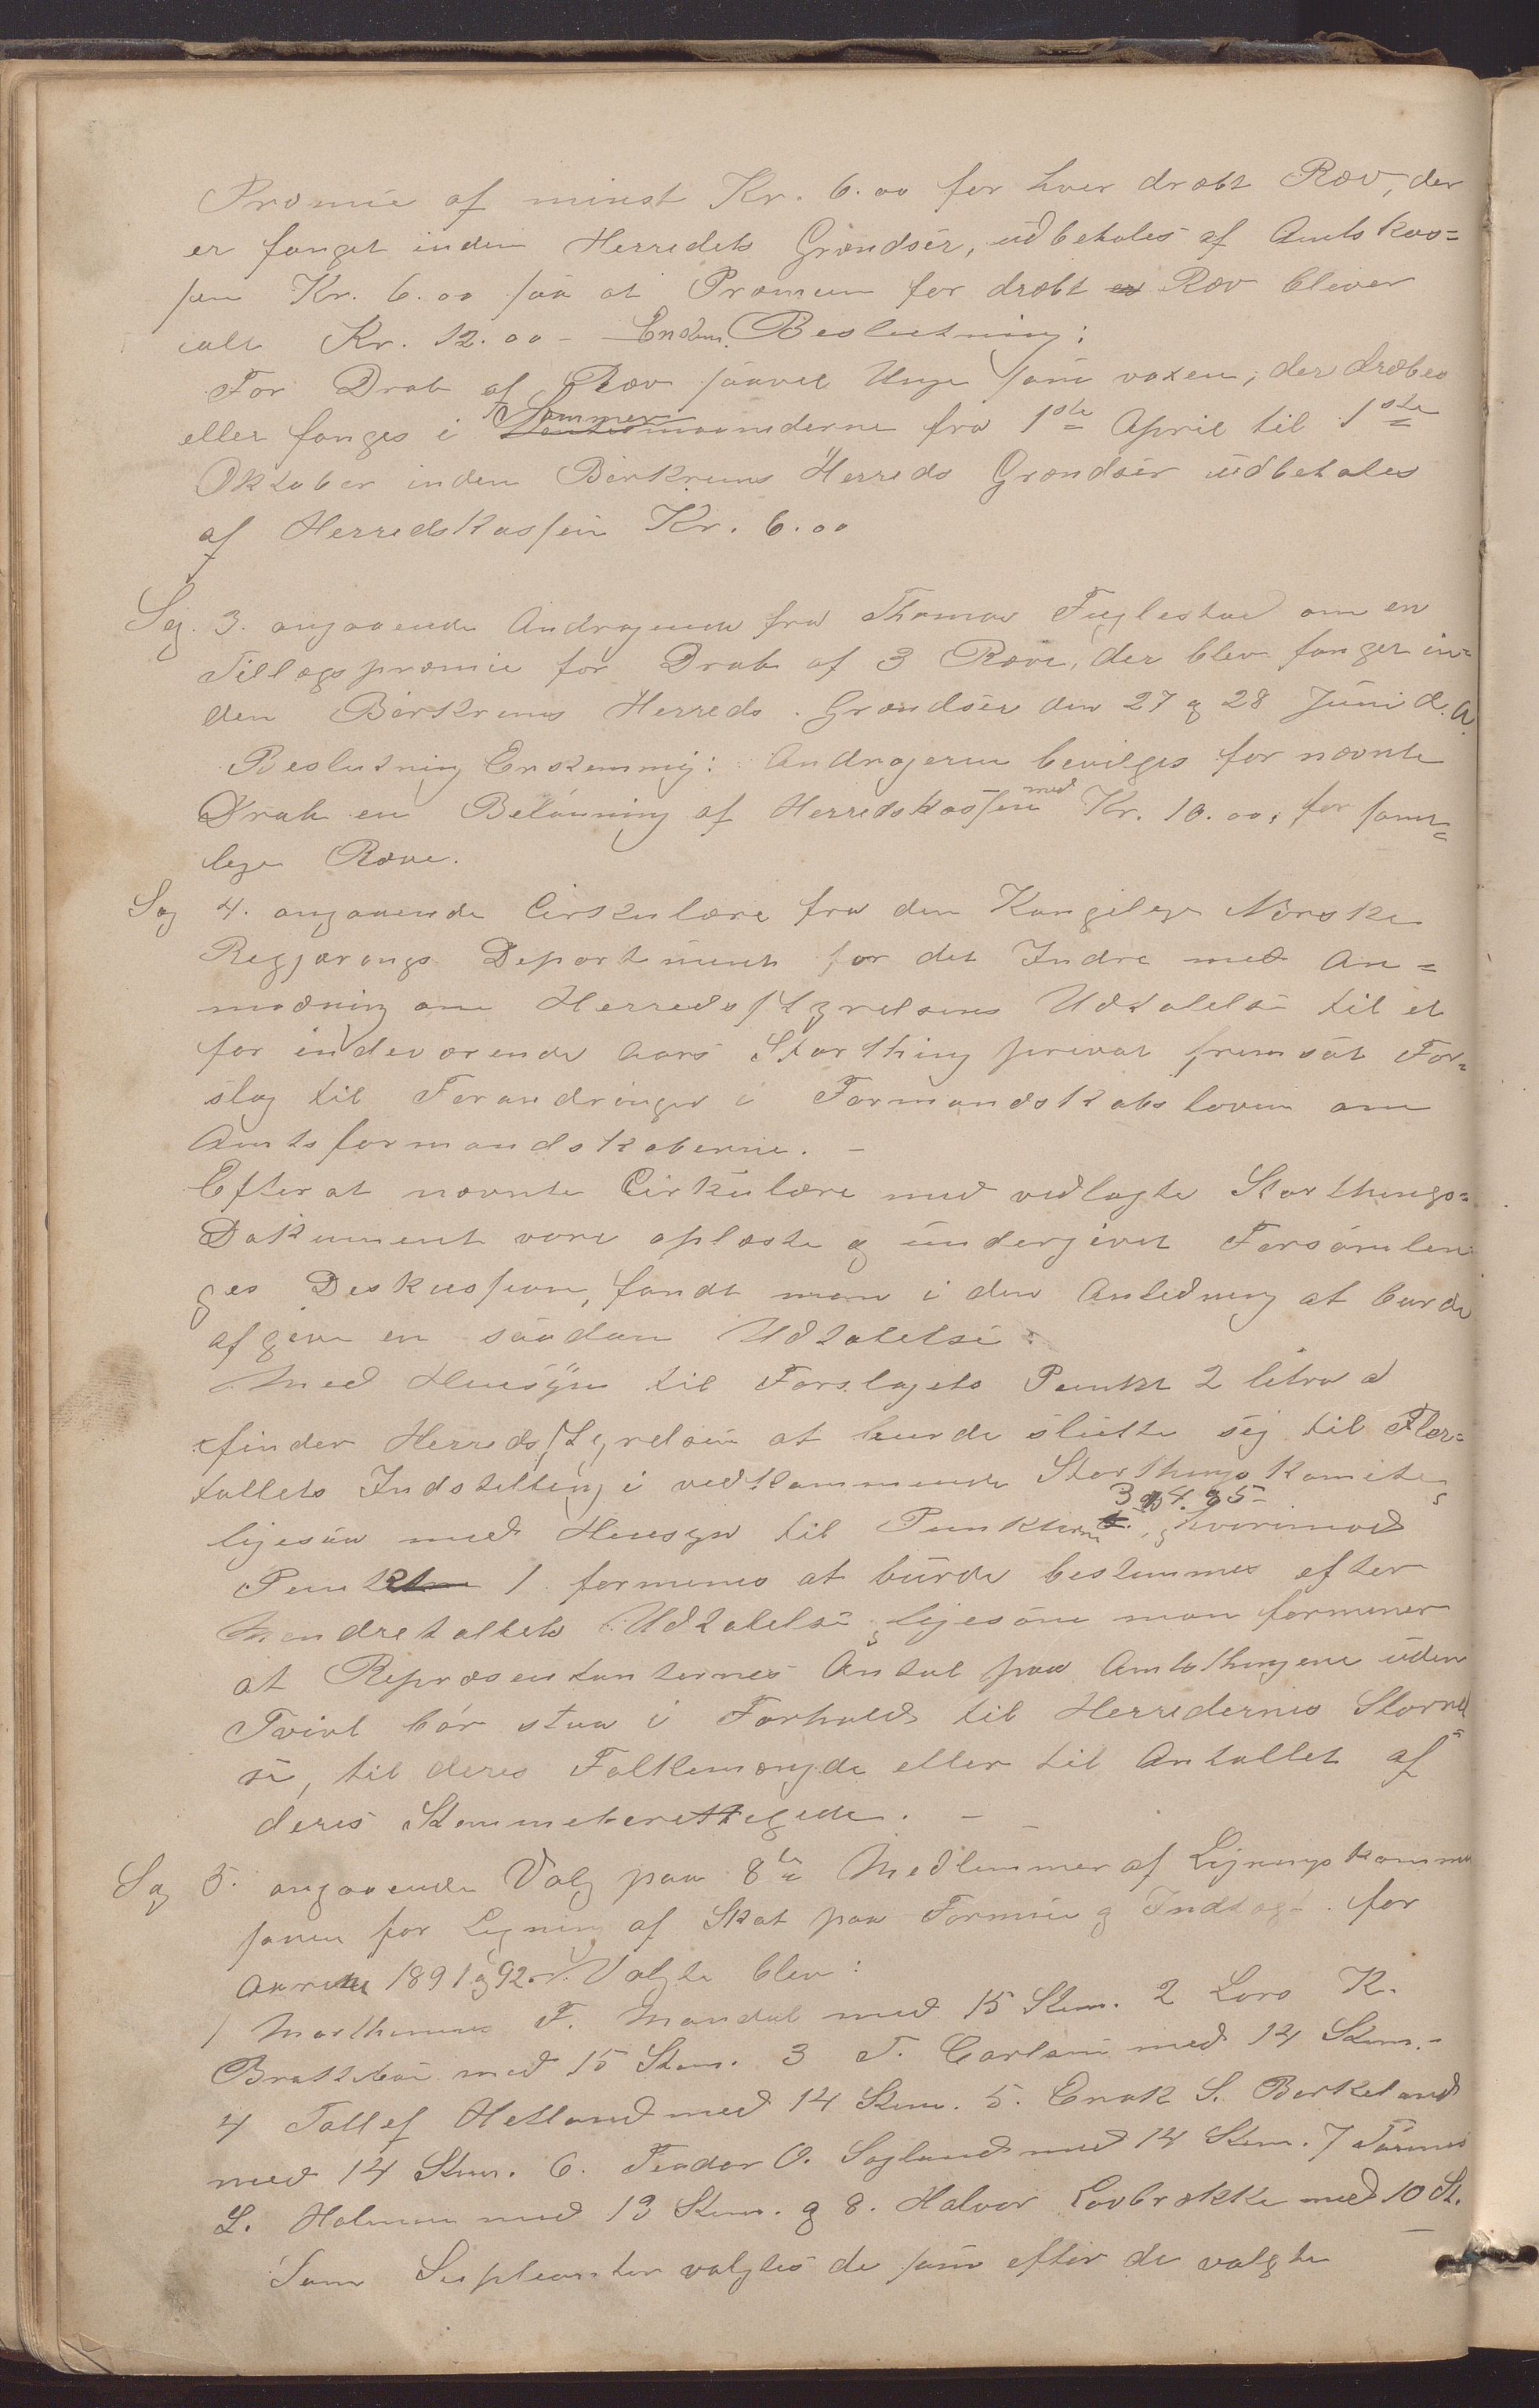 Præmie af minst Kr. 6.00 for hver dræbt Ræv, der
er fanget inden Herredets Grændser, udbetales af Amtskas=
sen Kr. 6.00 saa at Præmien for dræbt Ræv bliver
ialt Kr. 12.00 - Enstem. Beslutning:
For Drab af Ræv saavel Unge som voxen, der dræbes
eller fanges i Sommermaanederne fra 1ste April til 1ste
Oktober inden Birkrems Herreds Grændser udbetales
af Herredskassen Kr. 6.00
Sag. 3. angaaende Andragende fra Thomas Fuglestad om en
Tillægspræmie for Drab af 3 Ræve, der blev fanget in=
den Birkrems Herreds Grændser den 27 og 28 Juni d. A.
Beslutning Enstemmig: Andrageren bevilges for nævnte
Drab en Belønning af Herredskassen med Kr. 10.00, for samt=
lige Ræve.
Sag 4. angaaende Cirkulære fra den Kongelige Norske
Regjærings Departement for det Indre med An=
modning om Herredsstyrelsens Udtalelse til et
for indeværende Aars Storthing privat fremsat For=
slag til Forandringer i Formandskabsloven om
Amtsformandskaberne. -
Efterat nævnte Cirkulære med vedlagte Storthings=
Dokument vare oplæste og undergivet Forsamlin
ges Deskussion, fandt man i den Anledning at burde
afgive en saadan Udtalelse:
Med Hensyn til Forslagets Punkt 2 litra a
finder Herredsstyrelsen at burde slutte sig til Fler=
tallets Indstilling i vedkommende Storthings Komite,
ligesaa med Hensyn til Punkterne 3 og 4. og 5 - , hvorimod
Punkt 1. formenes at burde bestemmes efter
Mindretallets Udtalelse, ligesom man formener
at Repræsentanternes Antal paa Amtsthingene uden
Tvivl bør staa i Forhold til Herredernes Størrel
se, til deres Folkemængde eller til Antallet af
deres Stemmeberettigede. -
Sag 5. angaaende Valg paa 8te Medlemmer af Ligningskommis
sionen for Ligning af Skat paa Formue og Indtægt for
Aarene 1891 og 92. Valgte blev:
1 Marthinus F. Mandal med 15 Stem. 2 Lars K.
Bratzbø med 15 Stem. 3 T. Carlsen med 14 Stem. -
4 Tollef Hetland med 14 Stem. 5. Enok S. Birkeland
med 14 Stem. 6. Teodor O. Sagland med 14 Stem. 7 Tønnes
L. Holmen med 13 Stem. og 8. Halvor Lovbrække med 10 St.
Som Supleanter valgtes de som efter de valgte